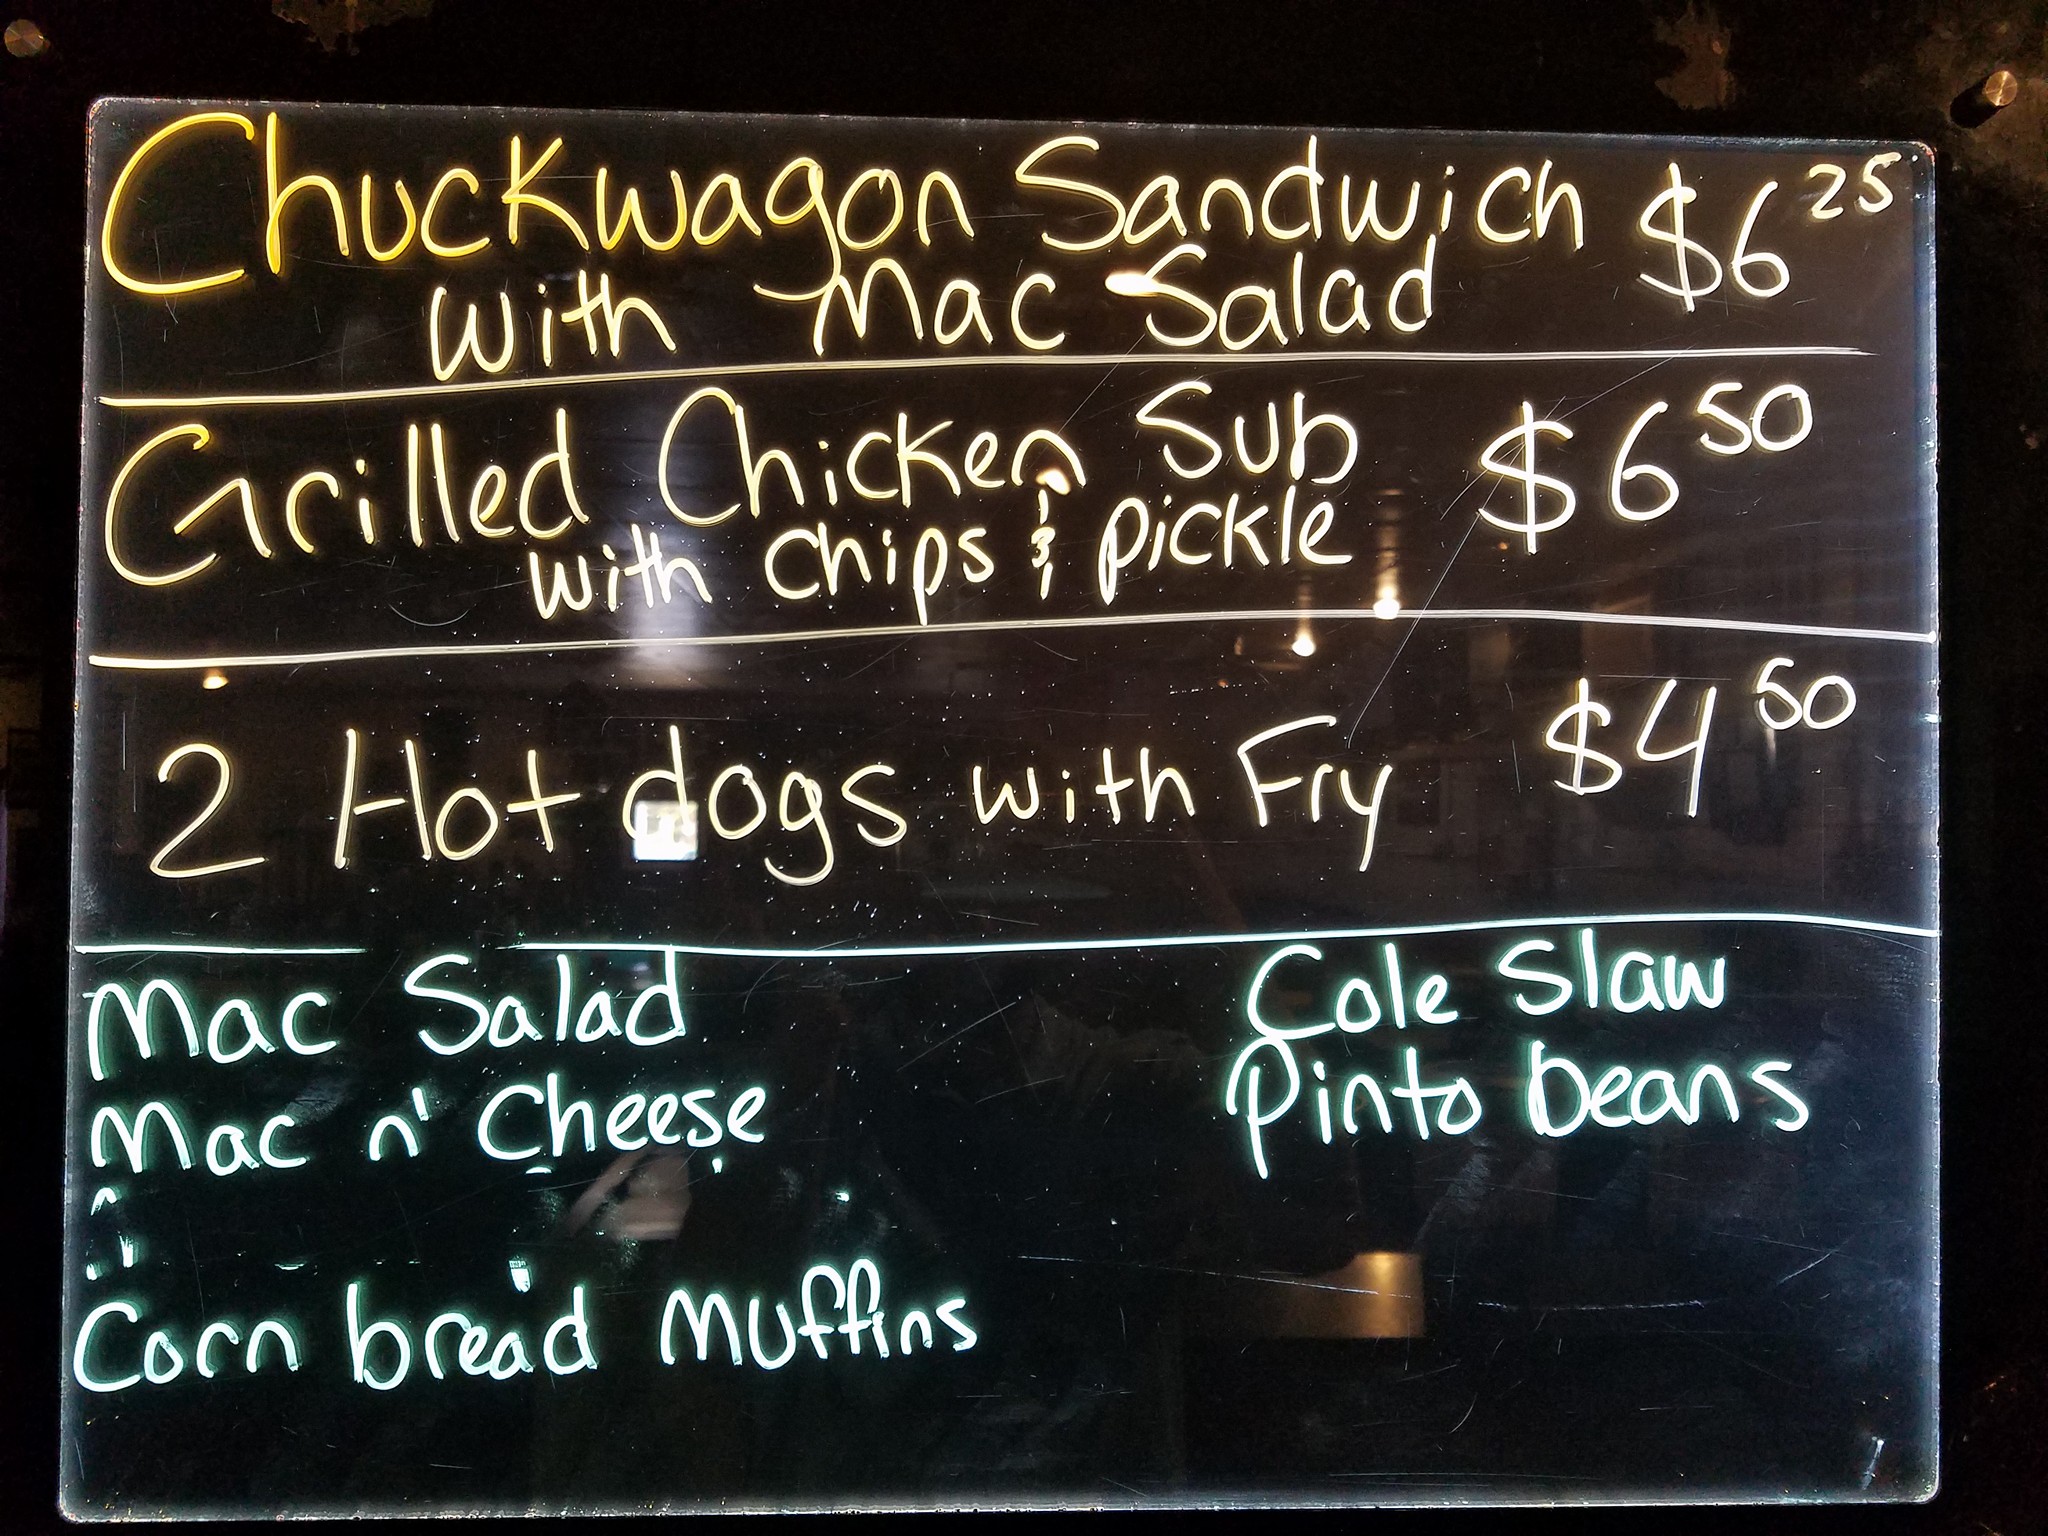 Chuckwagon Sandwich $6 25
with Mac Salad
Grilled Chicken Sub $6 50
with chips & pickle
2 Hot dogs with Fry $4 50
Mac Salad
Mac n' Cheese
Corn bread muffins
Cole Slaw
Pinto beans